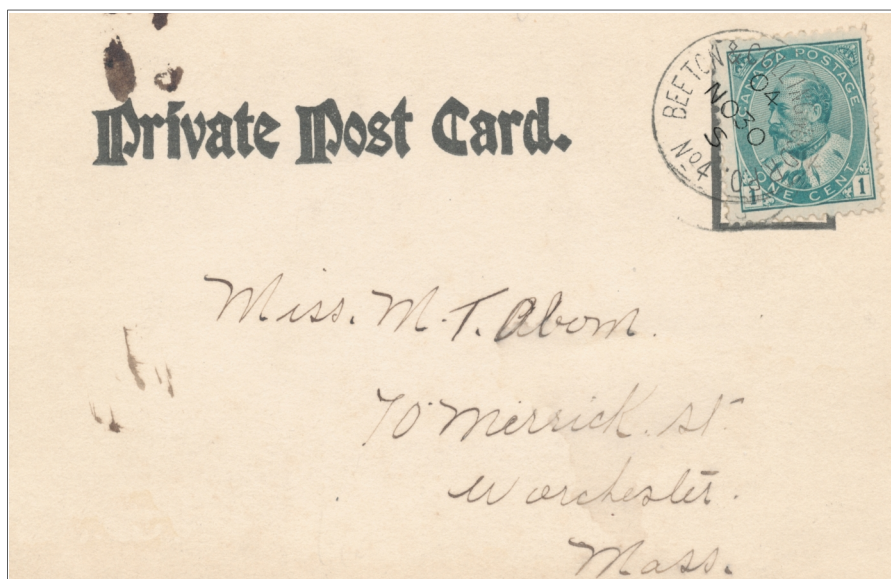 Private Post Card.
BEETON &
04
NO 30
S
No 4
CANADA POSTAGE
ONE CENT
1 1
Miss. M. T. Abom.
70 Merrick. St.
Worchester.
Mass.